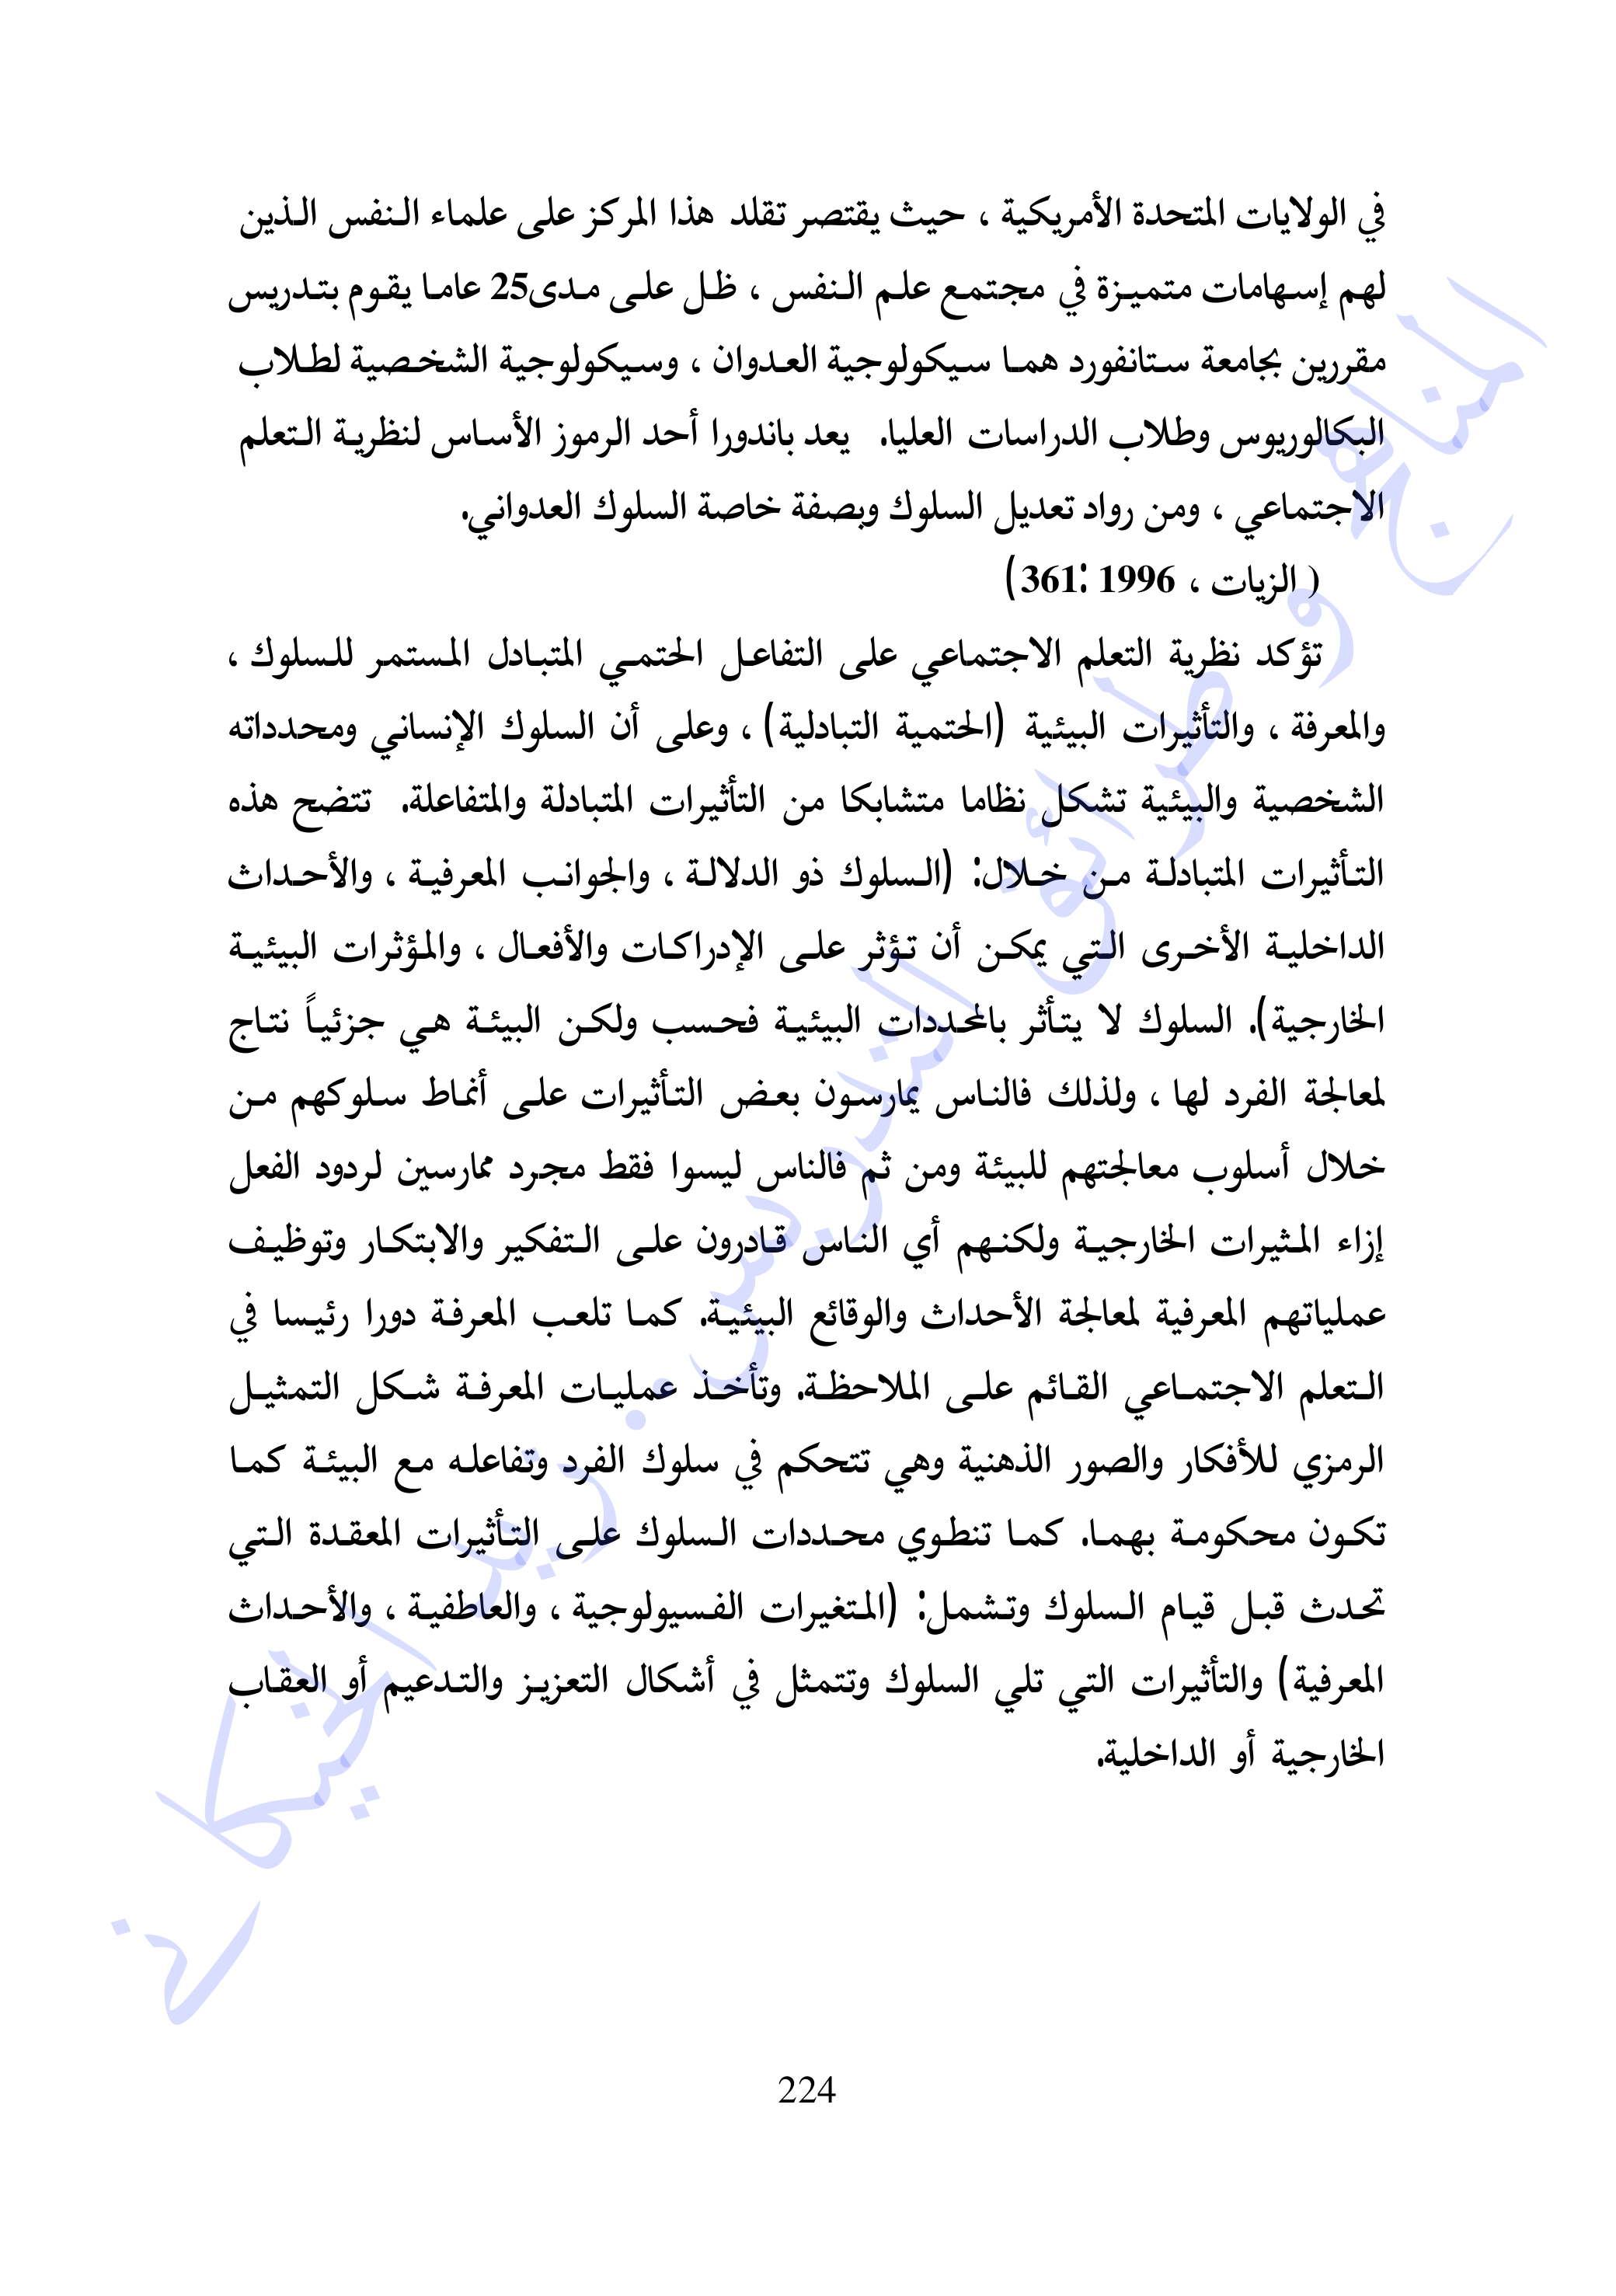 في الولايات المتحدة الأمريكية ، حيث يقتصر تقلد هذا المركز على علماء النفس الذين
لهم إسهامات متميزة في مجتمع علم النفس ، ظل على مدى25 عاما يقوم بتدريس
مقررين بجامعة ستانفورد هما سيكولوجية العدوان ، وسيكولوجية الشخصية لطلاب
البكالوريوس وطلاب الدراسات العليا. يعد باندورا أحد الرموز الأساس لنظرية التعلم
الاجتماعي ، ومن رواد تعديل السلوك وبصفة خاصة السلوك العدواني.
( الزيات ، 1996 :361)
تؤكد نظرية التعلم الاجتماعي على التفاعل الحتمي المتبادل المستمر للسلوك ،
والمعرفة ، والتأثيرات البيئية (الحتمية التبادلية) ، وعلى أن السلوك الإنساني ومحدداته
الشخصية والبيئية تشكل نظاما متشابكا من التأثيرات المتبادلة والمتفاعلة. تتضح هذه
التأثيرات المتبادلة من خلال: (السلوك ذو الدلالة ، والجوانب المعرفية ، والأحداث
الداخلية الأخرى التي يمكن أن تؤثر على الإدراكات والأفعال ، والمؤثرات البيئية
الخارجية). السلوك لا يتأثر بالمحددات البيئية فحسب ولكن البيئة هي جزئياً نتاج
لمعالجة الفرد لها ، ولذلك فالناس يمارسون بعض التأثيرات على أنماط سلوكهم من
خلال أسلوب معالجتهم للبيئة ومن ثم فالناس ليسوا فقط مجرد ممارسين لردود الفعل
إزاء المثيرات الخارجية ولكنهم أي الناس قادرون على التفكير والابتكار وتوظيف
عملياتهم المعرفية لمعالجة الأحداث والوقائع البيئية. كما تلعب المعرفة دورا رئيسا في
التعلم الاجتماعي القائم على الملاحظة. وتأخذ عمليات المعرفة شكل التمثيل
الرمزي للأفكار والصور الذهنية وهي تتحكم في سلوك الفرد وتفاعله مع البيئة كما
تكون محكومة بهما. كما تنطوي محددات السلوك على التأثيرات المعقدة التي
تحدث قبل قيام السلوك وتشمل: (المتغيرات الفسيولوجية ، والعاطفية ، والأحداث
المعرفية) والتأثيرات التي تلي السلوك وتتمثل في أشكال التعزيز والتدعيم أو العقاب
الخارجية أو الداخلية.
224